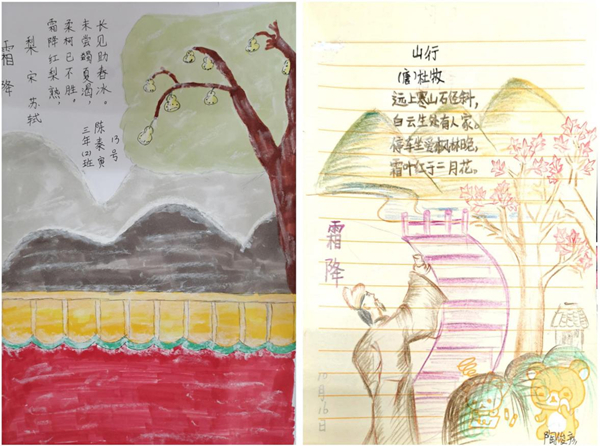 霜降
梨 宋 苏轼
霜降红梨熟,
柔柯已不胜。
未尝蠲夏渴,
长见助春冰。
三年(2)班
陈秦寅
13号
山行
(唐)杜牧
远上寒山石径斜,
白云生处有人家。
停车坐爱枫林晚,
霜叶红于二月花。
霜降
10月16日